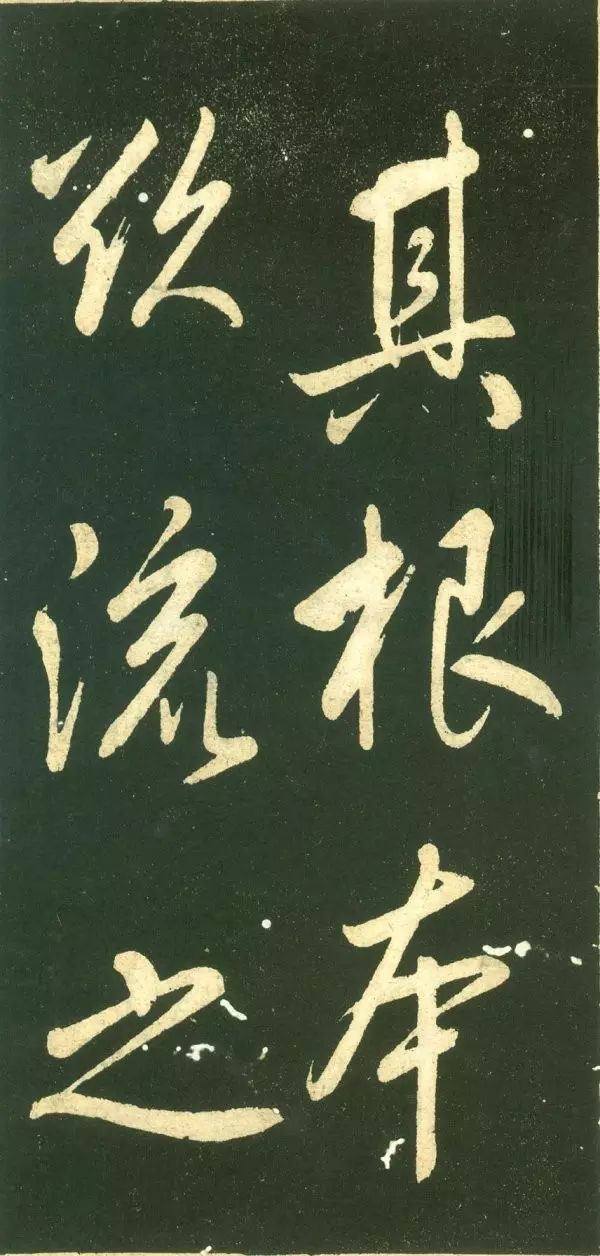 其根本
欲流之